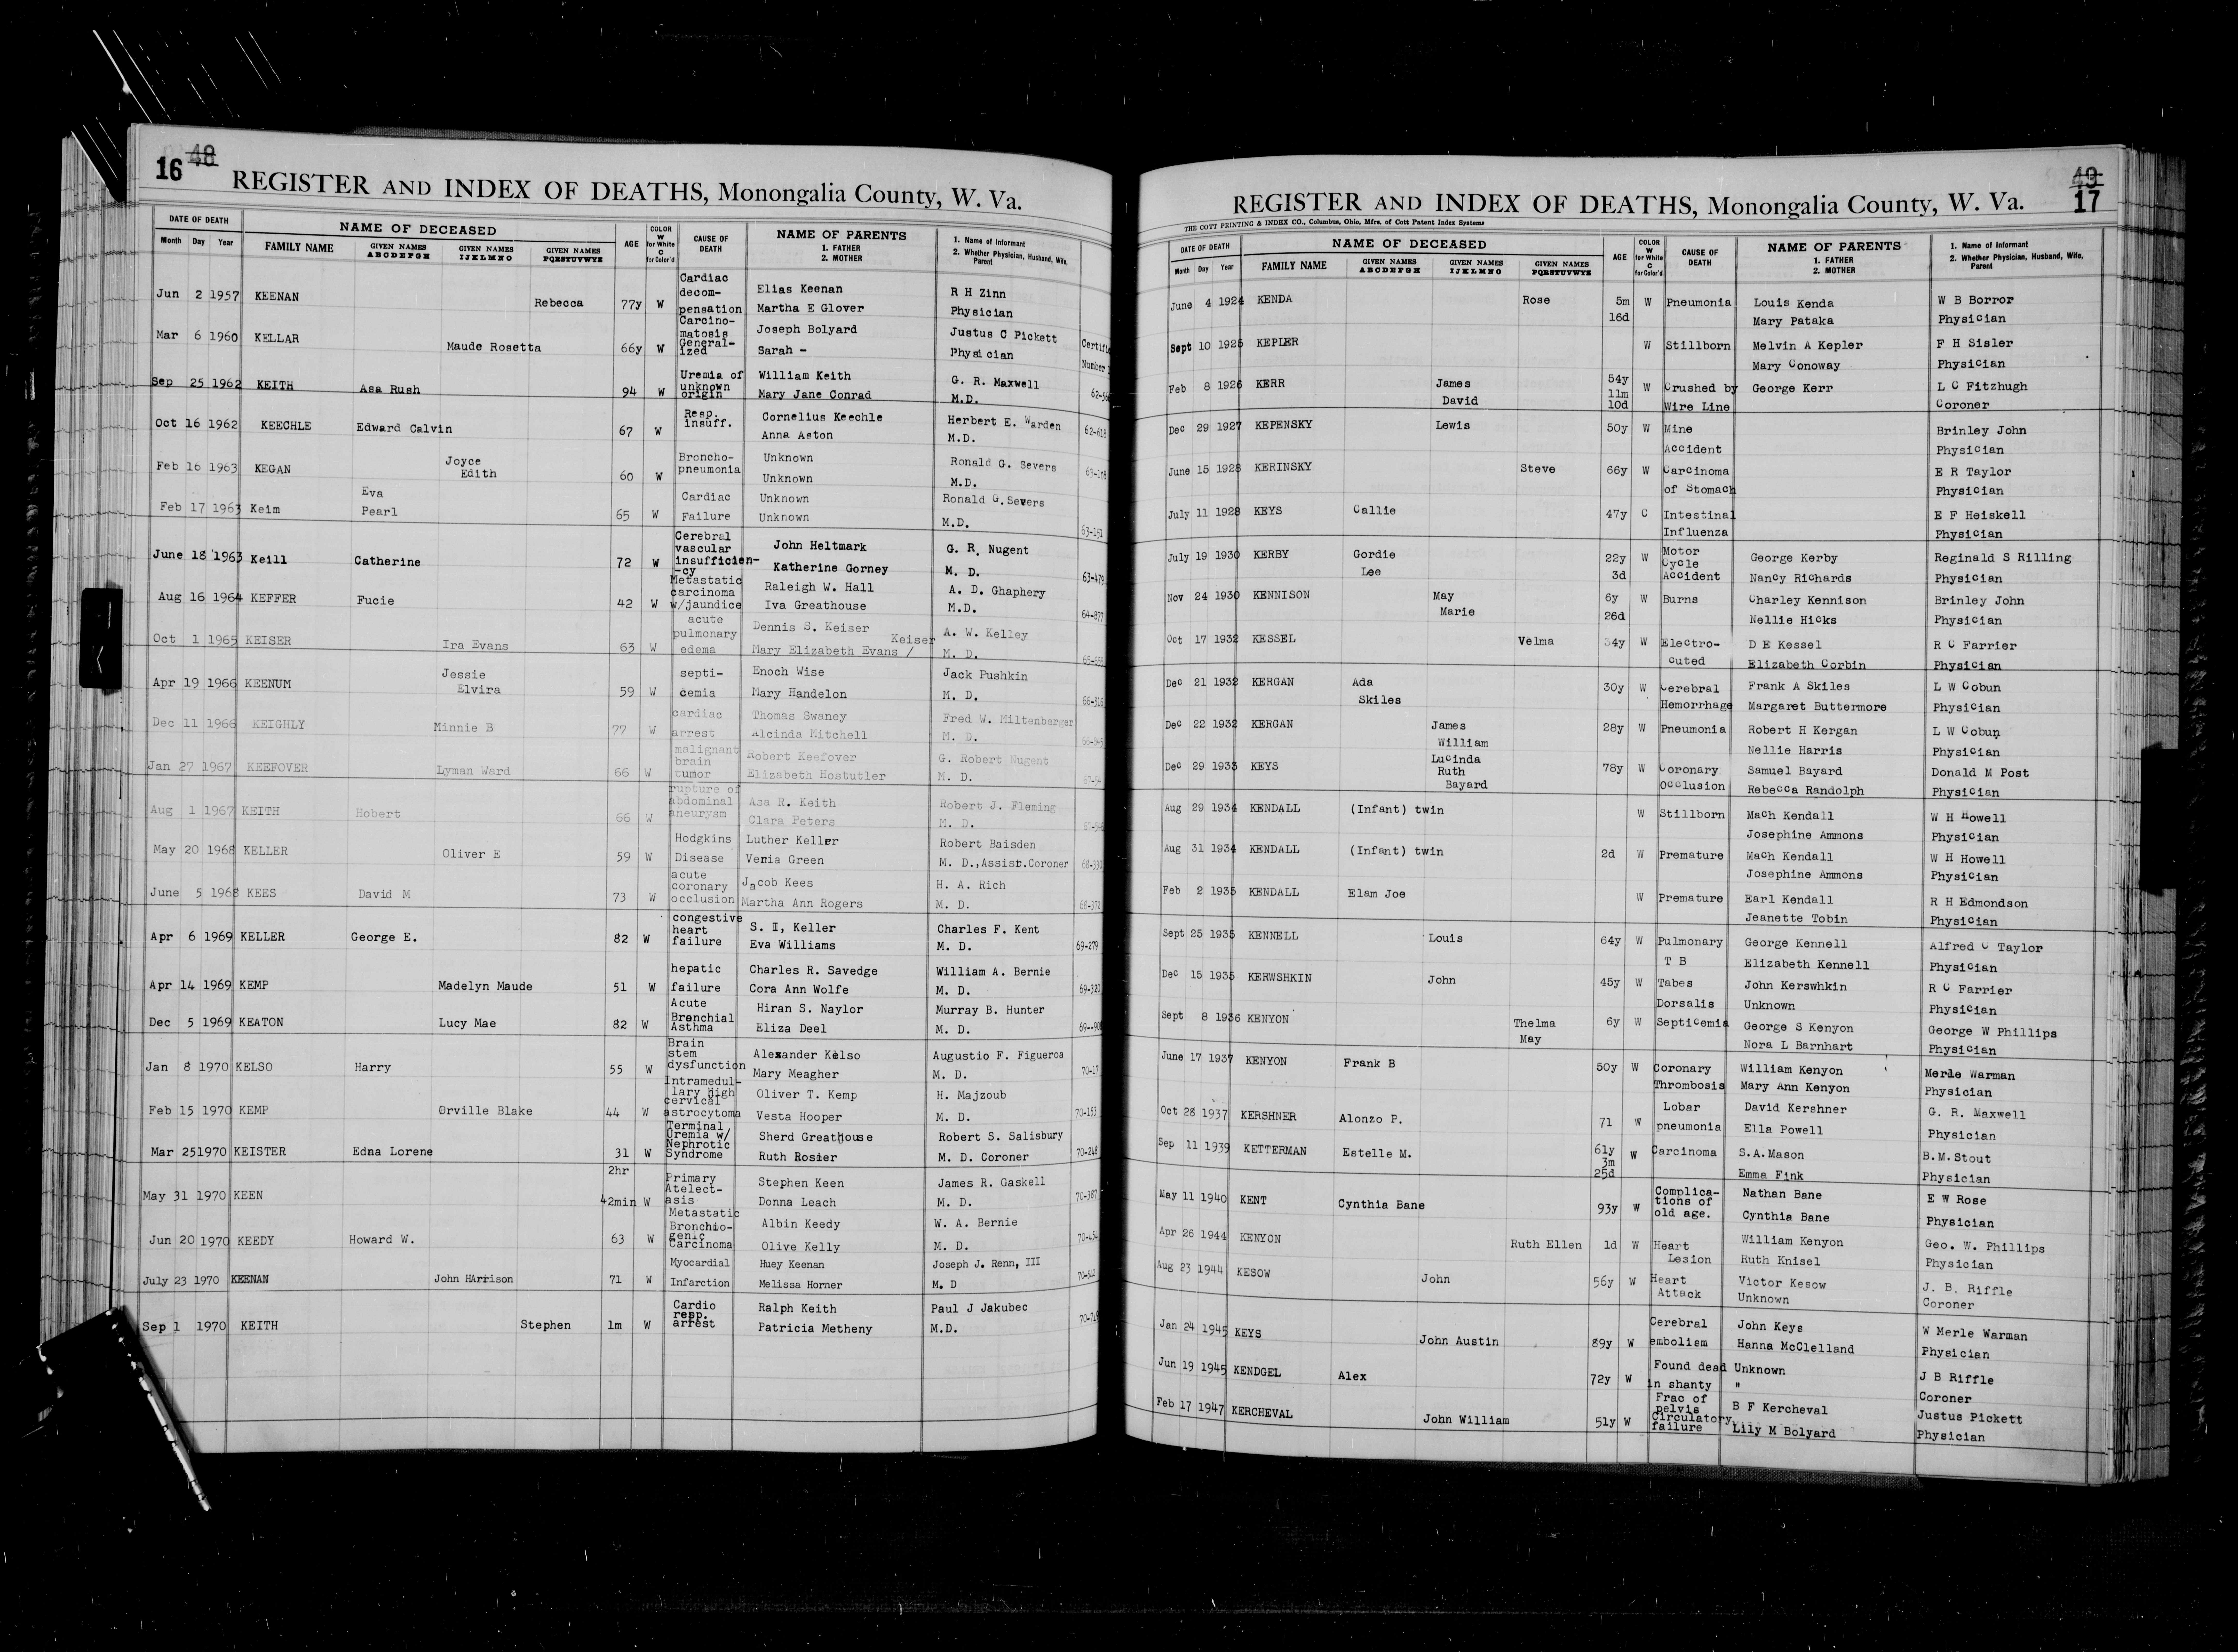 16 48
REGISTER AND INDEX OF DEATHS, Monongalia County, W. Va.
DATE OF DEATH NAME OF DECEASED AGE COLOR W for White C for Color'd CAUSE OF DEATH NAME OF PARENTS 1. FATHER 2. MOTHER 1. Name of Informant 2. Whether Physician, Husband, Wife, Parent
Month Day Year FAMILY NAME GIVEN NAMES ABCDEFGH GIVEN NAMES IJKLMNO GIVEN NAMES PQRSTUVWYZ
Jun 2 1957 KEENAN Rebecca 77y W Cardiac decom-pensation Elias Keenan Martha E Glover R H Zinn Physician
Mar 6 1960 KELLAR Maude Rosetta 66y W Carcino-matosis General-ized Joseph Bolyard Sarah - Justus C Pickett Physician
Number
Sep 25 1962 KEITH Asa Rush 94 W Uremia of unknown origin William Keith Mary Jane Conrad G. R. Maxwell M.D.
Oct 16 1962 KEECHLE Edward Calvin 67 W Resp. insuff. Cornelius Keechle Anna Aston Herbert E. Warden M.D. 62-618
Feb 16 1963 KEGAN Joyce Edith 60 W Broncho-pneumonia Unknown Unknown Ronald G. Severs M.D. 63-108
Feb 17 1963 Keim Eva Pearl 65 W Cardiac Failure Unknown Unknown Ronald G.Severs M.D. 63-151
June 18 1963 Keill Catherine 72 W Cerebral vascular insufficien-cy John Heltmark Katherine Gorney G. R. Nugent M. D. 63-479
Aug 16 1964 KEFFER Fucie 42 W Metastatic carcinoma w/jaundice Raleigh W. Hall Iva Greathouse A. D. Ghaphery M.D. 64-877
Oct 1 1965 KEISER Ira Evans 63 W acute pulmonary edema Dennis S. Keiser Mary Elizabeth Evans / Keiser A. W. Kelley M. D.
Apr 19 1966 KEENUM Jessie Elvira 59 W septi-cemia Enoch Wise Mary Handelon Jack Pushkin M. D. 66-316
Dec 11 1966 KEIGHLY Minnie B 77 W cardiac arrest Thomas Swaney Alcinda Mitchell Fred W. Miltenberger M. D.
Jan 27 1967 KEEFOVER Lyman Ward 66 W malignant brain tumor Robert Keefover Elizabeth Hostutler G. Robert Nugent M. D.
Aug 1 1967 KEITH Hobert 66 W rupture of abdominal aneurysm Asa R. Keith Clara Peters Robert J. Fleming M. D.
May 20 1968 KELLER Oliver E 59 W Hodgkins Disease Luther Keller Venia Green Robert Baisden M. D.,Assist.Coroner 68-330
June 5 1968 KEES David M 73 W acute coronary occlusion Jacob Kees Martha Ann Rogers H. A. Rich M. D. 68-372
Apr 6 1969 KELLER George E. 82 W congestive heart failure S. I, Keller Eva Williams Charles F. Kent M. D. 69-279
Apr 14 1969 KEMP Madelyn Maude 51 W hepatic failure Charles R. Savedge Cora Ann Wolfe William A. Bernie M. D. 69-320
Dec 5 1969 KEATON Lucy Mae 82 W Acute Bronchial Asthma Hiran S. Naylor Eliza Deel Murray B. Hunter M. D.
Jan 8 1970 KELSO Harry 55 W Brain stem dysfunction Alexander Kelso Mary Meagher Augustio F. Figueroa M. D. 70-17
Feb 15 1970 KEMP Orville Blake 44 W Intramedul-lary high cervical astrocytoma Oliver T. Kemp Vesta Hooper H. Majzoub M. D. 70-153
Mar 25 1970 KEISTER Edna Lorene 31 W Terminal Uremia w/ Nephrotic Syndrome Sherd Greathouse Ruth Rosier Robert S. Salisbury M. D. Coroner 70-248
May 31 1970 KEEN 2hr 42min W Primary Atelect-asis Stephen Keen Donna Leach James R. Gaskell M. D. 70-387
Jun 20 1970 KEEDY Howard W. 63 W Metastatic Bronchio-genic Carcinoma Albin Keedy Olive Kelly W. A. Bernie M. D. 70-454
July 23 1970 KEENAN John HArrison 71 W Myocardial Infarction Huey Keenan Melissa Horner Joseph J. Renn, III M. D
Sep 1 1970 KEITH Stephen 1m W Cardio resp. arrest Ralph Keith Patricia Metheny Paul J Jakubec M.D.
49 17
REGISTER AND INDEX OF DEATHS, Monongalia County, W. Va.
THE COTT PRINTING & INDEX CO., Columbus, Ohio, Mfrs. of Cott Patent Index Systems
DATE OF DEATH NAME OF DECEASED AGE COLOR W for White C for Color'd CAUSE OF DEATH NAME OF PARENTS 1. FATHER 2. MOTHER 1. Name of Informant 2. Whether Physician, Husband, Wife, Parent
Month Day Year FAMILY NAME GIVEN NAMES ABCDEFGH GIVEN NAMES IJKLMNO GIVEN NAMES PQRSTUVWYZ
June 4 1924 KENDA Rose 5m 16d W Pneumonia Louis Kenda Mary Pataka W B Borror Physician
Sept 10 1925 KEPLER W Stillborn Melvin A Kepler Mary Conoway F H Sisler Physician
Feb 8 1926 KERR James David 54y 11m 10d W Crushed by Wire Line George Kerr L C Fitzhugh Coroner
Dec 29 1927 KEPENSKY Lewis 50y W Mine Accident Brinley John Physician
June 15 1928 KERINSKY Steve 66y W Carcinoma of Stomach E R Taylor Physician
July 11 1928 KEYS Callie 47y C Intestinal Influenza E F Heiskell Physician
July 19 1930 KERBY Gordie Lee 22y 3d W Motor Cycle Accident George Kerby Nancy Richards Reginald S Rilling Physician
Nov 24 1930 KENNISON May Marie 6y 26d W Burns Charley Kennison Nellie Hicks Brinley John Physician
Oct 17 1932 KESSEL Velma 34y W Electro-cuted D E Kessel Elizabeth Corbin R C Farrier Physician
Dec 21 1932 KERGAN Ada Skiles 30y W Cerebral Hemorrhage Frank A Skiles Margaret Buttermore L W Cobun Physician
Dec 22 1932 KERGAN James William 28y W Pneumonia Robert H Kergan Nellie Harris L W Cobun Physician
Dec 29 1933 KEYS Lucinda Ruth Bayard 78y W Coronary Occlusion Samuel Bayard Rebecca Randolph Donald M Post Physician
Aug 29 1934 KENDALL (Infant) twin W Stillborn Mach Kendall Josephine Ammons W H Howell Physician
Aug 31 1934 KENDALL (Infant) twin 2d W Premature Mach Kendall Josephine Ammons W H Howell Physician
Feb 2 1935 KENDALL Elam Joe W Premature Earl Kendall Jeanette Tobin R H Edmondson Physician
Sept 25 1935 KENNELL Louis 64y W Pulmonary T B George Kennell Elizabeth Kennell Alfred C Taylor Physician
Dec 15 1935 KERWSHKIN John 45y W Tabes Dorsalis John Kerswhkin Unknown R C Farrier Physician
Sept 8 1936 KENYON Thelma May 6y W Septicemia George S Kenyon Nora L Barnhart George W Phillips Physician
June 17 1937 KENYON Frank B 50y W Coronary Thrombosis William Kenyon Mary Ann Kenyon Merle Warman Physician
Oct 28 1937 KERSHNER Alonzo P. 71 W Lobar pneumonia David Kershner Ella Powell G. R. Maxwell Physician
Sep 11 1939 KETTERMAN Estelle M. 61y 3m 25d W Carcinoma S.A.Mason Emma Fink B.M.Stout Physician
May 11 1940 KENT Cynthia Bane 93y W Complica-tions of old age. Nathan Bane Cynthia Bane E W Rose Physician
Apr 26 1944 KENYON Ruth Ellen 1d W Heart Lesion William Kenyon Ruth Knisel Geo. W. Phillips Physician
Aug 23 1944 KESOW John 56y W Heart Attack Victor Kesow Unknown J. B. Riffle Coroner
Jan 24 1945 KEYS John Austin 89y W Cerebral embolism John Keys Hanna McClelland W Merle Warman Physician
Jun 19 1945 KENDGEL Alex 72y W Found dead in shanty Unknown " J B Riffle Coroner
Feb 17 1947 KERCHEVAL John William 51y W Frac of pelvis Circulatory failure B F Kercheval Lily M Bolyard Justus Pickett Physician